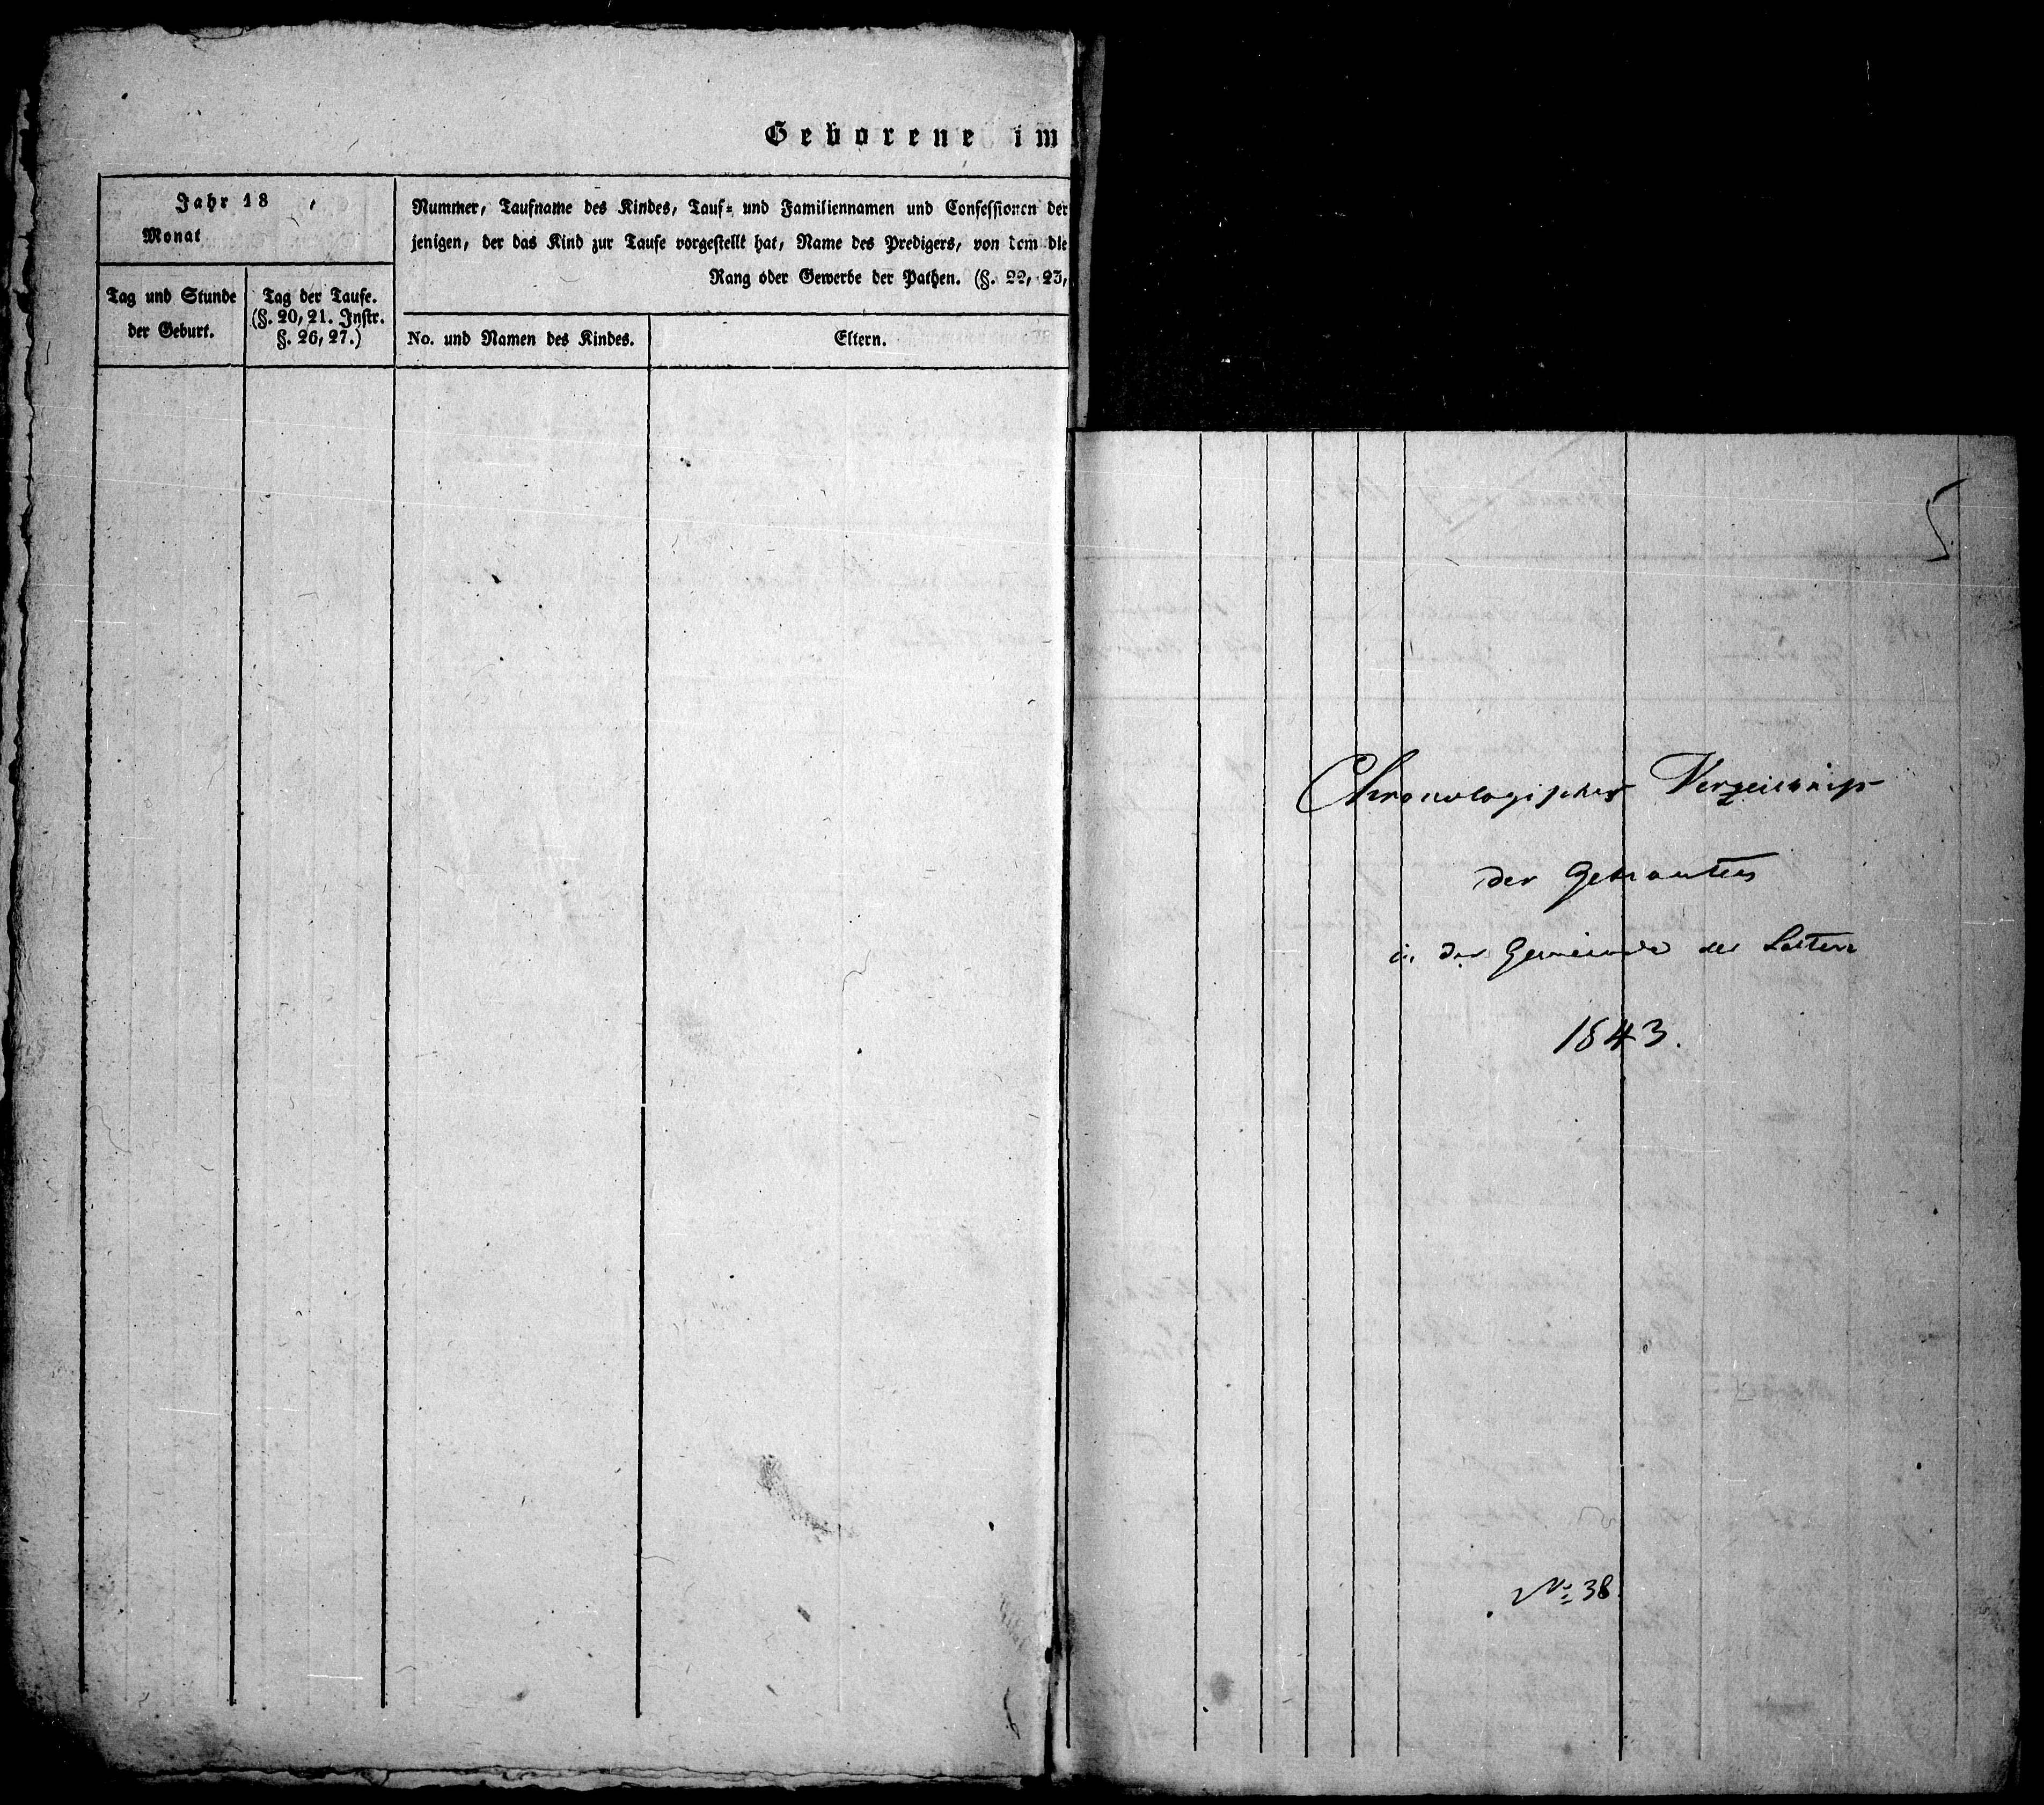 Geborene im
Jahr 18 ,
Monat
Nummer, Taufname des Kindes, Tauf= und Familiennamen und Confessionen der
jenigen, der das Kind zur Taufe vorgestellt hat, Name des Predigers, von dem die
Rang oder Gewerbe der Pathen. (§. 22, 23,
Tag und Stunde
der Geburt.
Tag der Taufe.
(§. 20, 21. Instr.
§. 26, 27.)
No. und Namen des Kindes.
Eltern.
5
Chronologisches Verzeichniß
der Getrauten
in der Gemeinde der
1843.
No. 38.